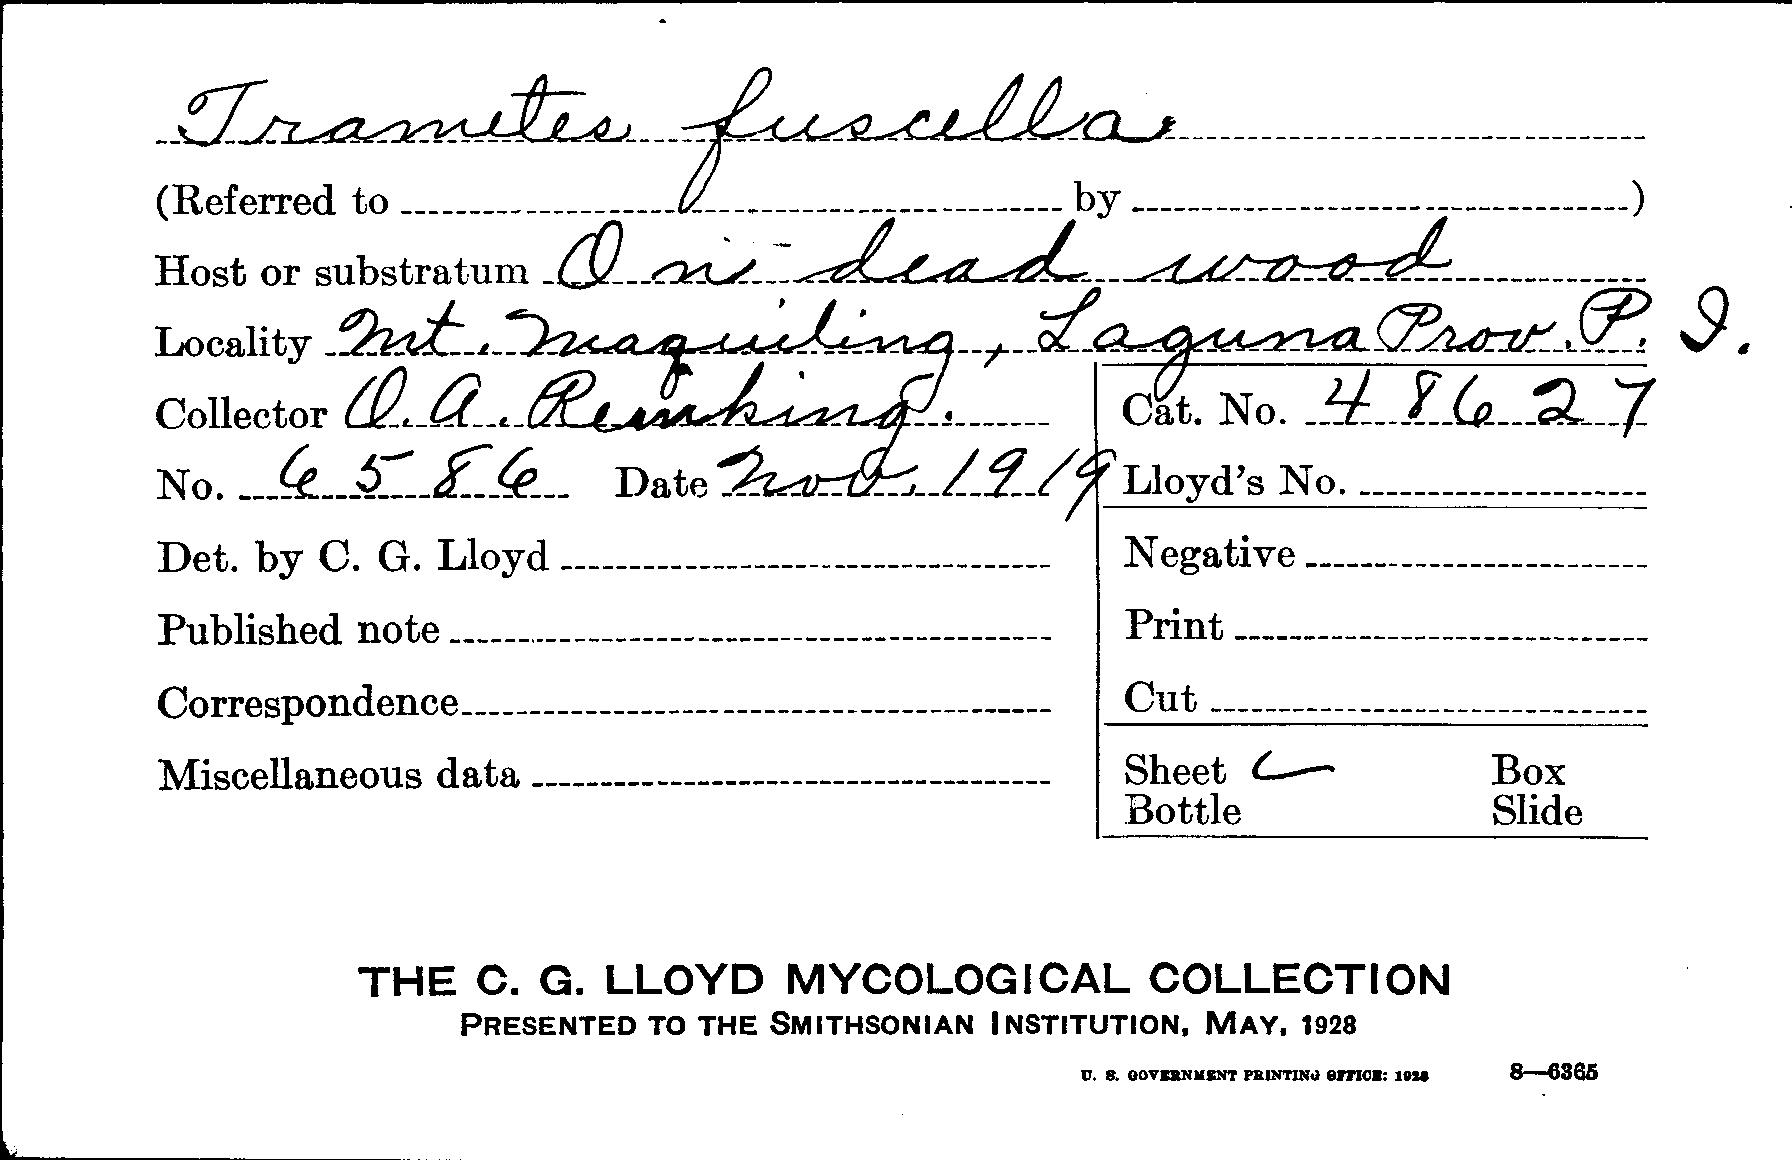 Trametes fuscella.
(Referred to by )
Host or substratum On dead wood
Locality Mt. Maquiling, Laguna Prov. P. I.
Collector O. A. Reinking. Cat. No. 48627
No. 6586 Date Nov. 1919 Lloyd's No.
Det. by C. G. Lloyd Negative
Published note Print
Correspondence Cut
Miscellaneous data Sheet Box
Bottle Slide
THE C. G. LLOYD MYCOLOGICAL COLLECTION
PRESENTED TO THE SMITHSONIAN INSTITUTION, MAY, 1928
U. S. GOVERNMENT PRINTING OFFICE: 1928 8—6365